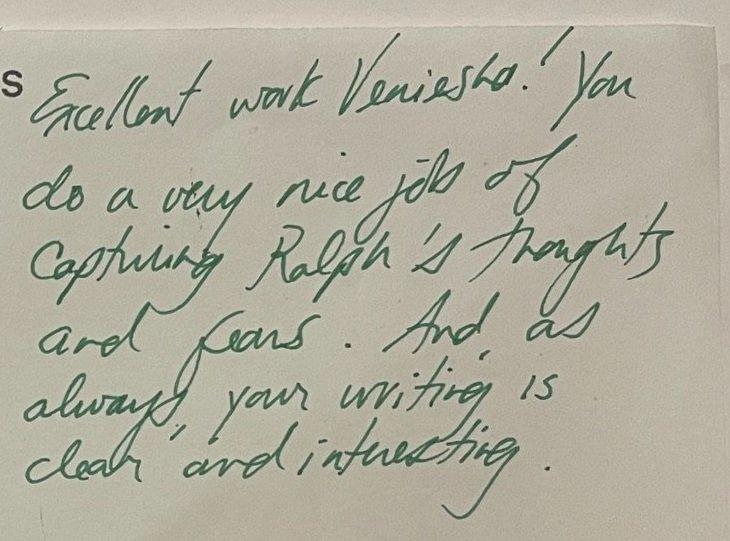 S Excellent work Veniesha! You
do a very nice job of
Capturing Ralph's thoughts
and fears. And, as
always, your writing is
clear and interesting.